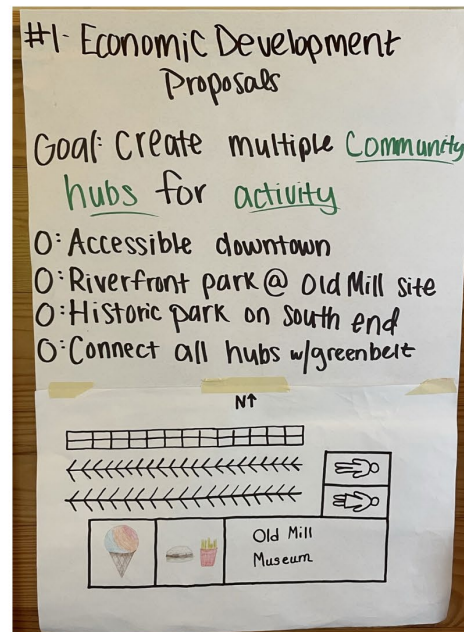 #1- Economic Development
Proposals
Goal: Create multiple Community
hubs for activity
O: Accessible downtown
O: Riverfront park @ Old Mill site
O: Historic park on south end
O: Connect all hubs w/greenbelt
N↑
Old Mill
Museum